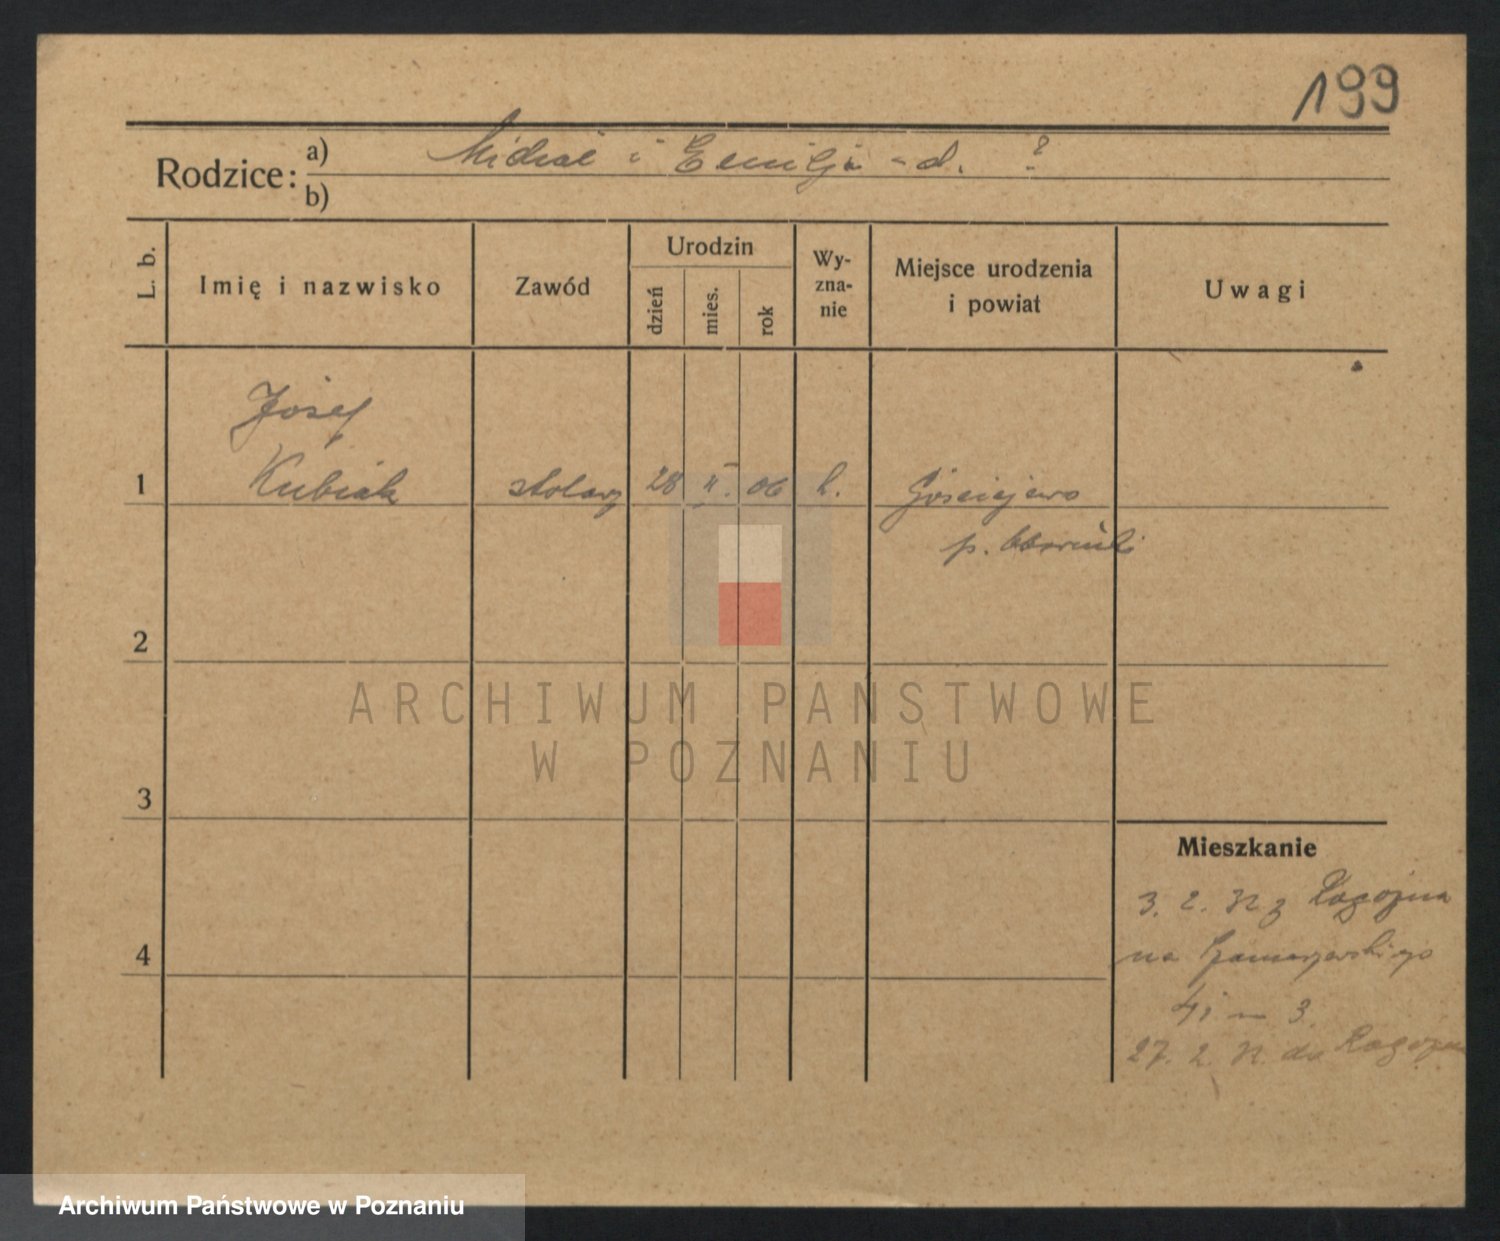 199
Rodzice: a) Michał i Emilja - d. ?
b)
L. b.
Imię i nazwisko
Zawód
Urodzin
dzień
mies.
rok
Wy-
zna-
nie
Miejsce urodzenia
i powiat
Uwagi
Józef
1 Kubiak stolarz 28 II. 06 k. Gościejewo
p. Obornicki
2
ARCHIWUM PAŃSTWOWE
W POZNANIU
3
Mieszkanie
3. 2. 32 z Rogoźna
na
4
3.
27. 2. 32. do Rogoźna
Archiwum Państwowe w Poznaniu